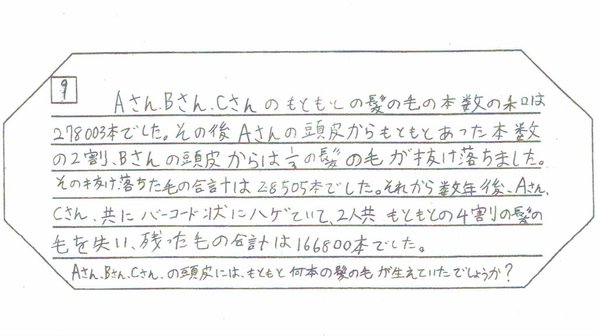 9
Aさん、Bさん、Cさんのもともとの髪の毛の本数の和は
278003本でした。その後Aさんの頭皮からもともとあった本数
の2割、Bさんの頭皮からは1/3の髪の毛が抜け落ちました。
その抜け落ちた毛の合計は28505本でした。それから数年後、Aさん、
Cさん、共にバーコード状にハゲていて、2人共もともとの4割の髪の
毛を失い、残った毛の合計は166800本でした。
Aさん、Bさん、Cさん、の頭皮には、もともと何本の髪の毛が生えていたでしょうか？